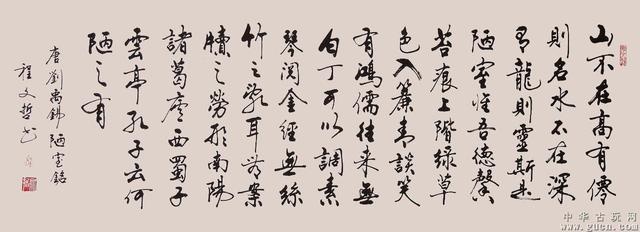 山不在高有僊
則名水不在深
有龍則靈斯是
陋室惟吾德馨
苔痕上階緑草
色入簾青談笑
有鴻儒往来無
白丁可以調素
琴閲金經無絲
竹之亂耳無案
牘之勞形南陽
諸葛廬西蜀子
雲亭孔子云何
陋之有
唐劉禹錫陋室銘
程文哲书
中华古玩网
www.gucn.com